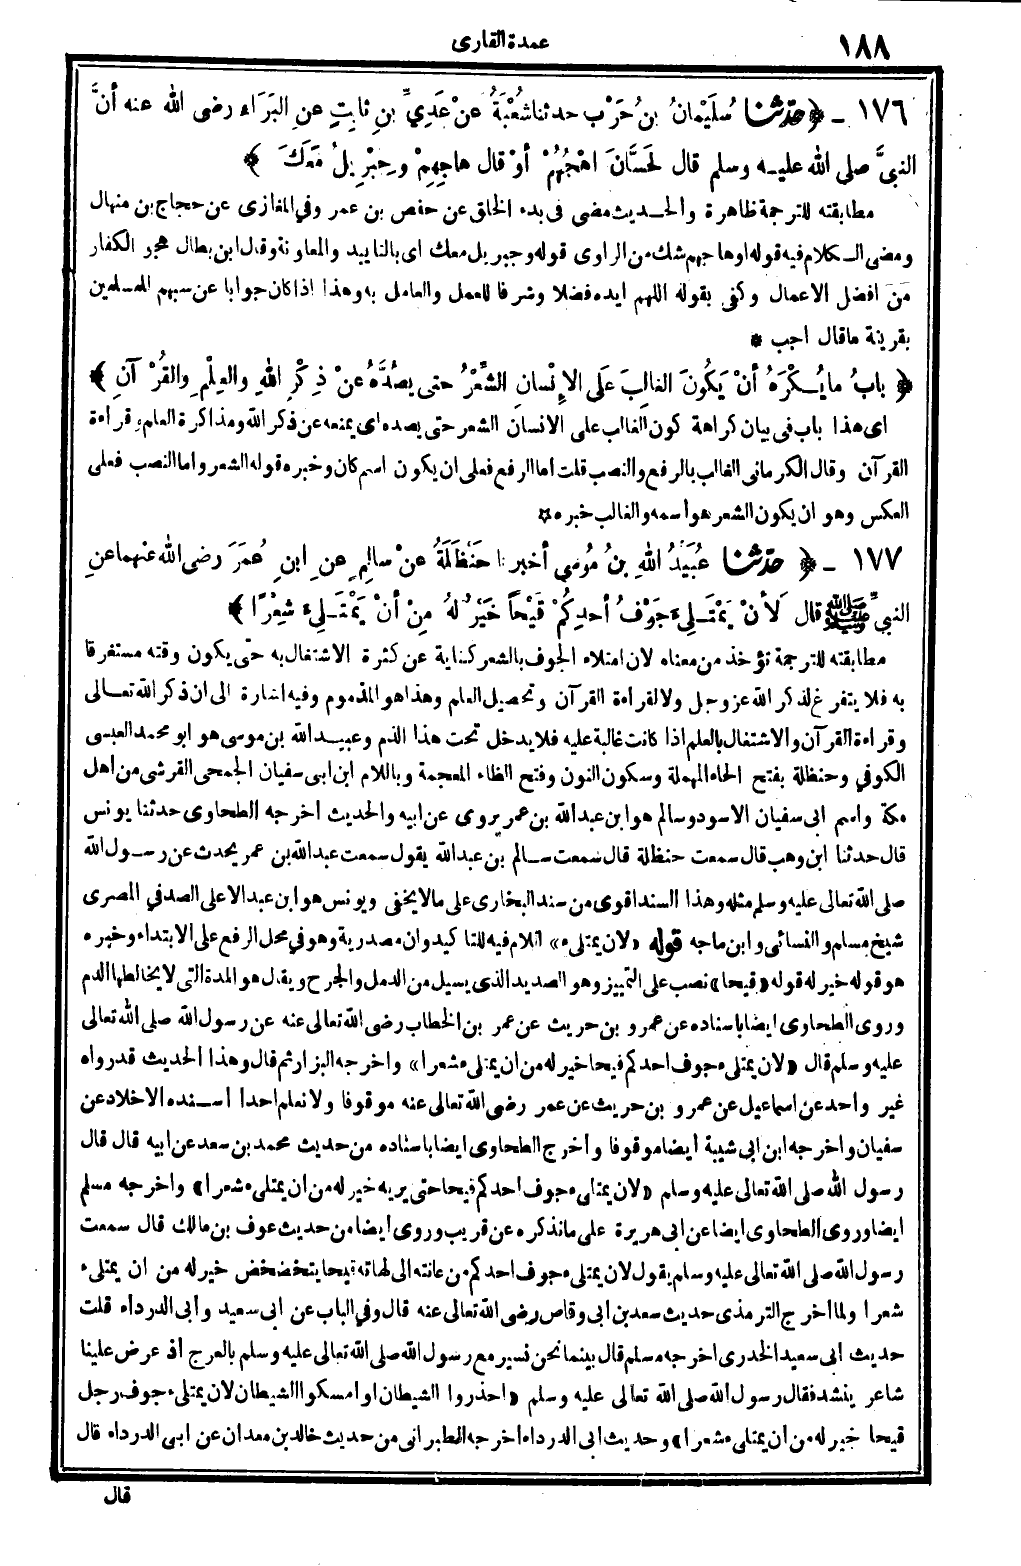 ١٨٨
عمدة القارى
١٧٦ - ﴿ حدّثنا سُلَيْمانُ بنُ حَرْبٍ حدثنا شُعْبَةُ عنْ عَدِيِّ بنِ ثابِتٍ عنِ البَرَاءِ رضى الله عنه أنَّ
النبيَّ صلى الله عليه وسلم قال لِحَسَّانَ اهْجُهُمْ أوْ قال هاجِهِمْ وجِبْرِيلُ مَعَكَ ﴾
مطابقته للترجمة ظاهرة والحديث مضى فى بدء الخلق عن حفص بن عمر وفي المغازى عن حجاج بن منهال
ومضى الكلام فيه قوله اوهاجهم شك من الراوى قوله وجبريل معك اى بالتاييد والمعاونة وقال ابن بطال هجو الكفار
من افضل الاعمال وكفى بقوله اللهم ايده فضلا وشرفا للعمل والعامل به وهذا اذا كان جوابا عن سبهم المسلمين
بقرينة ماقال اجب *
﴿ بابُ ما يُكْرَهُ أنْ يَكُونَ الغالِبَ عَلَى الإِنْسانِ الشِّعْرُ حتى يصُدَّهُ عنْ ذِكْرِ اللهِ والعِلْمِ والقُرْآنِ ﴾
اى هذا باب فى بيان كراهة كون الغالب على الانسان الشعر حتى يصده اى يمنعه عن ذكر الله ومذاكرة العلم وقراءة
القرآن وقال الكرمانى الغالب بالرفع والنصب قلت اما الرفع فعلى ان يكون اسم كان وخبره قوله الشعر واما النصب فعلى
العكس وهو ان يكون الشعر هو اسمه والغالب خبره *
١٧٧ - ﴿ حدّثنا عُبَيْدُ اللهِ بنُ مُوسى أخبرنا حَنْظَلَةُ عنْ سالِمٍ عنِ ابنِ عُمَرَ رضى الله عنهما عنِ
النبيِّ ﷺ قال لَأنْ يَمْتَلِىءَ جَوْفُ أحدِكُمْ قَيْحاً خَيْرٌ لهُ مِنْ أنْ يَمْتَلِىءَ شِعْرًا ﴾
مطابقته للترجمة تؤخذ من معناه لان امتلاء الجوف بالشعر كناية عن كثرة الاشتغال به حتى يكون وقته مستغرقا
به فلا يتفرغ لذكر الله عز وجل ولا لقراءة القرآن وتحصيل العلم وهذا هو المذموم وفيه اشارة الى ان ذكر الله تعالى
وقراءة القرآن والاشتغال بالعلم اذا كانت غالبة عليه فلا يدخل تحت هذا الذم وعبيد الله بن موسى هو ابو محمد العبسى
الكوفي وحنظلة بفتح الحاء المهملة وسكون النون وفتح الظاء المعجمة وباللام ابن ابى سفيان الجمحى القرشى من اهل
مكة واسم ابى سفيان الاسود وسالم هو ابن عبد الله بن عمر يروى عن ابيه والحديث اخرجه الطحاوى حدثنا يونس
قال حدثنا ابن وهب قال سمعت حنظلة قال سمعت سالم بن عبد الله يقول سمعت عبد الله بن عمر يحدث عن رسول الله
صلى الله تعالى عليه وسلم مثله وهذا السند اقوى من سند البخارى على مالا يخفى ويونس هو ابن عبد الاعلى الصدفي المصرى
شيخ مسلم والنسائى وابن ماجه قوله «لان يمتلىء» اللام فيه للتاكيد وان مصدرية وهو في محل الرفع على الابتداء وخبره
هو قوله خير له قوله «قيحا» نصب على التمييز وهو الصديد الذى يسيل من الدمل والجرح ويقال هو المدة التى لا يخالطها الدم
وروى الطحاوى ايضا باسناده عن عمرو بن حريث عن عمر بن الخطاب رضى الله تعالى عنه عن رسول الله صلى الله تعالى
عليه وسلم قال «لان يمتلىء جوف احدكم قيحا خير له من ان يمتلىء شعرا» واخرجه البزار ثم قال وهذا الحديث قد رواه
غير واحد عن اسماعيل عن عمرو بن حريث عن عمر رضى الله تعالى عنه موقوفا ولا نعلم احدا اسنده الا خلاد عن
سفيان واخرجه ابن ابى شيبة أيضا موقوفا وأخرج الطحاوى ايضا باسناده من حديث محمد بن سعد عن ابيه قال قال
رسول الله صلى الله تعالى عليه وسلم «لان يمتلىء جوف احدكم قيحا حتى يريه خير له من ان يمتلىء شعرا» واخرجه مسلم
ايضا وروى الطحاوى ايضا عن ابى هريرة على ما نذكره عن قريب وروى ايضا من حديث عوف بن مالك قال سمعت
رسول الله صلى الله تعالى عليه وسلم يقول لان يمتلىء جوف احدكم من عانته الى لهاته قيحا يتخضخض خير له من ان يمتلىء
شعرا ولما اخرج الترمذى حديث سعد بن ابى وقاص رضى الله تعالى عنه قال وفي الباب عن ابى سعيد وأبى الدرداء قلت
حديث ابى سعيد الخدرى اخرجه مسلم قال بينما نحن نسير مع رسول الله صلى الله تعالى عليه وسلم بالعرج اذ عرض علينا
شاعر ينشد فقال رسول الله صلى الله تعالى عليه وسلم «احذروا الشيطان او امسكوا الشيطان لان يمتلىء جوف رجل
قيحا خير له من ان يمتلىء شعرا» وحديث ابى الدرداء اخرجه الطبرانى من حديث خالد بن معدان عن ابى الدرداء قال
قال